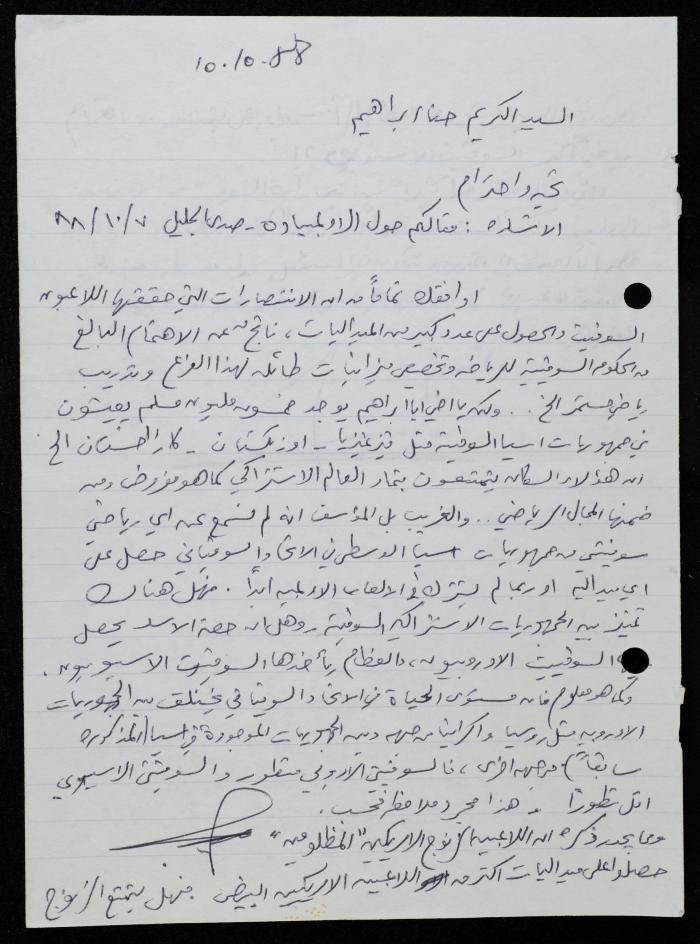 ١٥.١٥.٨٨
السيد الكريم حنا ابراهيم
تحيه واحترام
الاشاره : مقالكم حول الاولمبياده - صدى الجليل ٨٨/١٠/٧
اوافقك تماماً من ان الانتصارات التي حققتها اللاعبون
السوفيت والحصول على عدد كبير من الميداليات ، ناتج عن الاهتمام البالغ
من الحكومه السوفيتية للرياضه وتخصيص ميزانيات طائله لهذا الفرع وتدريب
رياضي مستمر الخ . . ولكن يا اخي ابا ابراهيم يوجد خمسون مليون مسلم يعيشون
في جمهوريات اسيا السوفيتية مثل قيرغيزيا - اوزبكستان - كازاخستان الخ
ان هؤلاء السكان يتمتعون بثمار العالم الاشتراكي كما هو مفروض ومن
ضمنها المجال الرياضي . . والغريب بل المؤسف انه لم نسمع عن اي رياضي
سوفيتي من جمهوريات اسيا الوسطى في الاتحاد السوفياتي حصل على
اي ميداليه او ربما لم يشترك في الالعاب الاولمبيه ابداً . فهل هناك
تمييز بين الجمهوريات الاشتراكيه السوفيتية وهل ان حصة الاسد يحصل
السوفييت الاوروبيون ، والعظام يأخذها السوفييت الاسيويون .
وكما هو معلوم فان مستوى الحياة في الاتحاد السوفياتي يختلف بين الجمهوريات
الاوروبيه مثل روسيا واكرانيا من جهه وبين الجمهوريات الموجودة في اسيا (المذكوره
سابقاً) من جهه اخرى ، فالسوفيتي الاوروبي متطور والسوفيتي الاسيوي
اقل تطوراً . هذا مجرد ملاحظه فحسب .
ومما يجدر ذكره ان اللاعبين الزنوج الامريكيين "المظلومين"
حصلوا على ميداليات اكثر من اللاعبين الامريكيين البيض . فهل يتمتع الزنوج